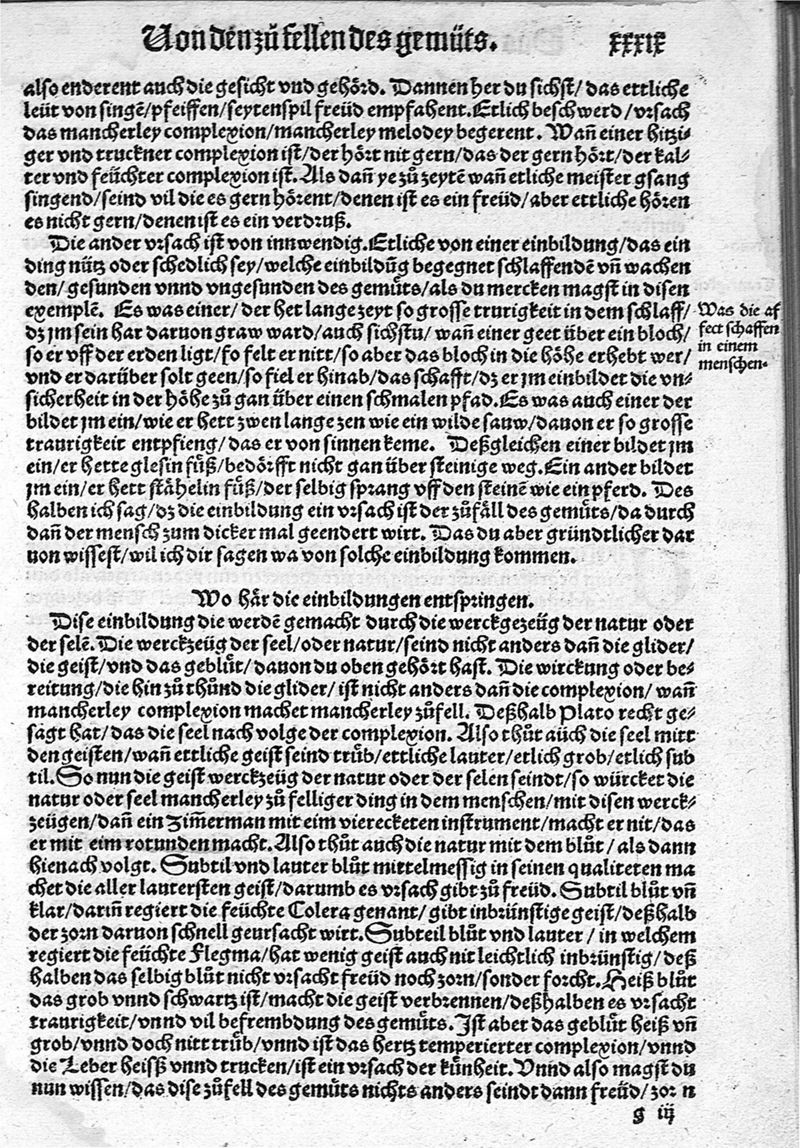 Von den zůfellen des gemüts. xxxix
also enderent auch die gesicht vnd gehörd. Dannen her du sichst/ das ettliche
leüt von singē/pfeiffen/seytenspil freüd empfahent. Etlich beschwerd/vrsach
das mancherley complexion/mancherley melodey begerent. Wañ einer hitzi⸗
ger vnd truckner complexion ist/der hört nit gern/das der gern hört/der kal⸗
ter vnd feüchter complexion ist. Als dañ ye zů zeytē wañ etliche meister gsang
singend/seind vil die es gern hörent/denen ist es ein freüd/aber ettliche hören
es nicht gern/denen ist es ein verdruß.
Die ander vrsach ist von innwendig. Etliche von einer einbildung/das ein
ding nütz oder schedlich sey/welche einbildūg begegnet schlaffendē vñ wachen
den/gesunden vnnd vngesunden des gemüts/als du mercken magst in disen
exemplē. Es was einer/der het lange zeyt so grosse trurigkeit in dem schlaff/
dz jm sein har daruon graw ward/auch sichstu/wañ einer geet über ein bloch/
so er vff der erden ligt/so felt er nitt/so aber das bloch in die höhe erhebt wer/
vnd er darüber solt geen/so fiel er hinab/das schafft/dz er jm einbildet die vn⸗
sicherheit in der höhe zů gan über einen schmalen pfad. Es was auch einer der
bildet jm ein/wie er hett zwen lange zen wie ein wilde sauw/dauon er so grosse
traurigkeit entpfieng/das er von sinnen keme. Deßgleichen einer bildet jm
ein/er hette glesin füß/bedörfft nicht gan über steinige weg. Ein ander bildet
jm ein/er hett stähelin füß/der selbig sprang vff den steinē wie ein pferd. Des
halben ich sag/dz die einbildung ein vrsach ist der zůfäll des gemüts/da durch
dañ der mensch zum dicker mal geendert wirt. Das du aber gründtlicher dar
uon wissest/wil ich dir sagen wa von solche einbildung kommen.
Was die af
fect schaffen
in einem
menschen.
Wo här die einbildungen entspringen.
Dise einbildung die werdē gemacht durch die werckgezeüg der natur oder
der selē. Die werckzeüg der seel/oder natur/seind nicht anders dañ die glider/
die geist/vnd das geblůt/dauon du oben gehört hast. Die wirckung oder be⸗
reitung/die hin zů thůnd die glider/ist nicht anders dañ die complexion/wañ
mancherley complexion machet mancherley zůfell. Deßhalb Plato recht ge⸗
sagt hat/das die seel nach volge der complexion. Also thůt aůch die seel mitt
den geisten/wañ ettliche geist seind trůb/ettliche lauter/etlich grob/etlich sub
til. So nun die geist werckzeüg der natur oder der selen seindt/so würcket die
natur oder seel mancherley zůfelliger ding in dem menschen/mit disen werck⸗
zeügen/dañ ein zim̄erman mit eim viereckten instrument/macht er nit/das
er mit eim rotunden macht. Also thůt auch die natur mit dem blůt/als dann
hienach volgt. Subtil vnd lauter blůt mittelmessig in seinen qualiteten ma
chet die aller lautersten geist/darumb es vrsach gibt zů freüd. Subtil blůt vñ
klar/dariñ regiert die feüchte Colera genant/gibt inbrünstige geist/deßhalb
der zorn daruon schnell geursacht wirt. Subteil blůt vnd lauter/in welchem
regiert die feüchte Flegma/hat wenig geist auch nit leichtlich inbrünstig/deß
halben das selbig blůt nicht vrsacht freüd noch zorn/sonder forcht. Heiß blůt
das grob vnnd schwartz ist/macht die geist verbrennen/deßhalben es vrsacht
traurigkeit/vnnd vil befrembdung des gemüts. Ist aber das geblůt heiß vñ
grob/vnnd doch nitt trůb/vnnd ist das hertz temperierter complexion/vnnd
die Leber heiß vnnd trucken/ist ein vrsach der kůnheit. Vnnd also magst du
nun wissen/das dise zůfell des gemüts nichts anders seindt dann freüd/zorn
g iij